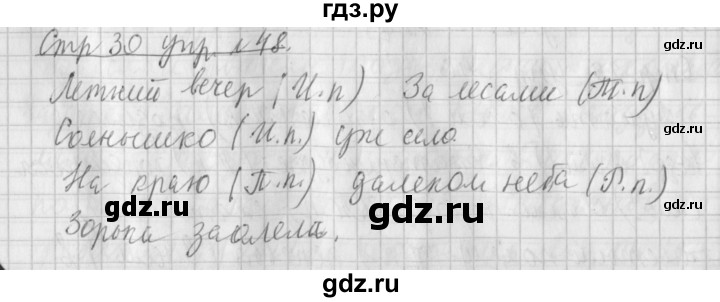 гдз.ру
Стр 30 упр. №48.
Летний вечер (И.п) За лесами (Т.п)
Солнышко (И.п.) уж село.
На краю (П.п.) далеком неба (Р.п.)
Зорька заалела.
gdz.ru
gdz.ru
gdz.ru
gdz.ru